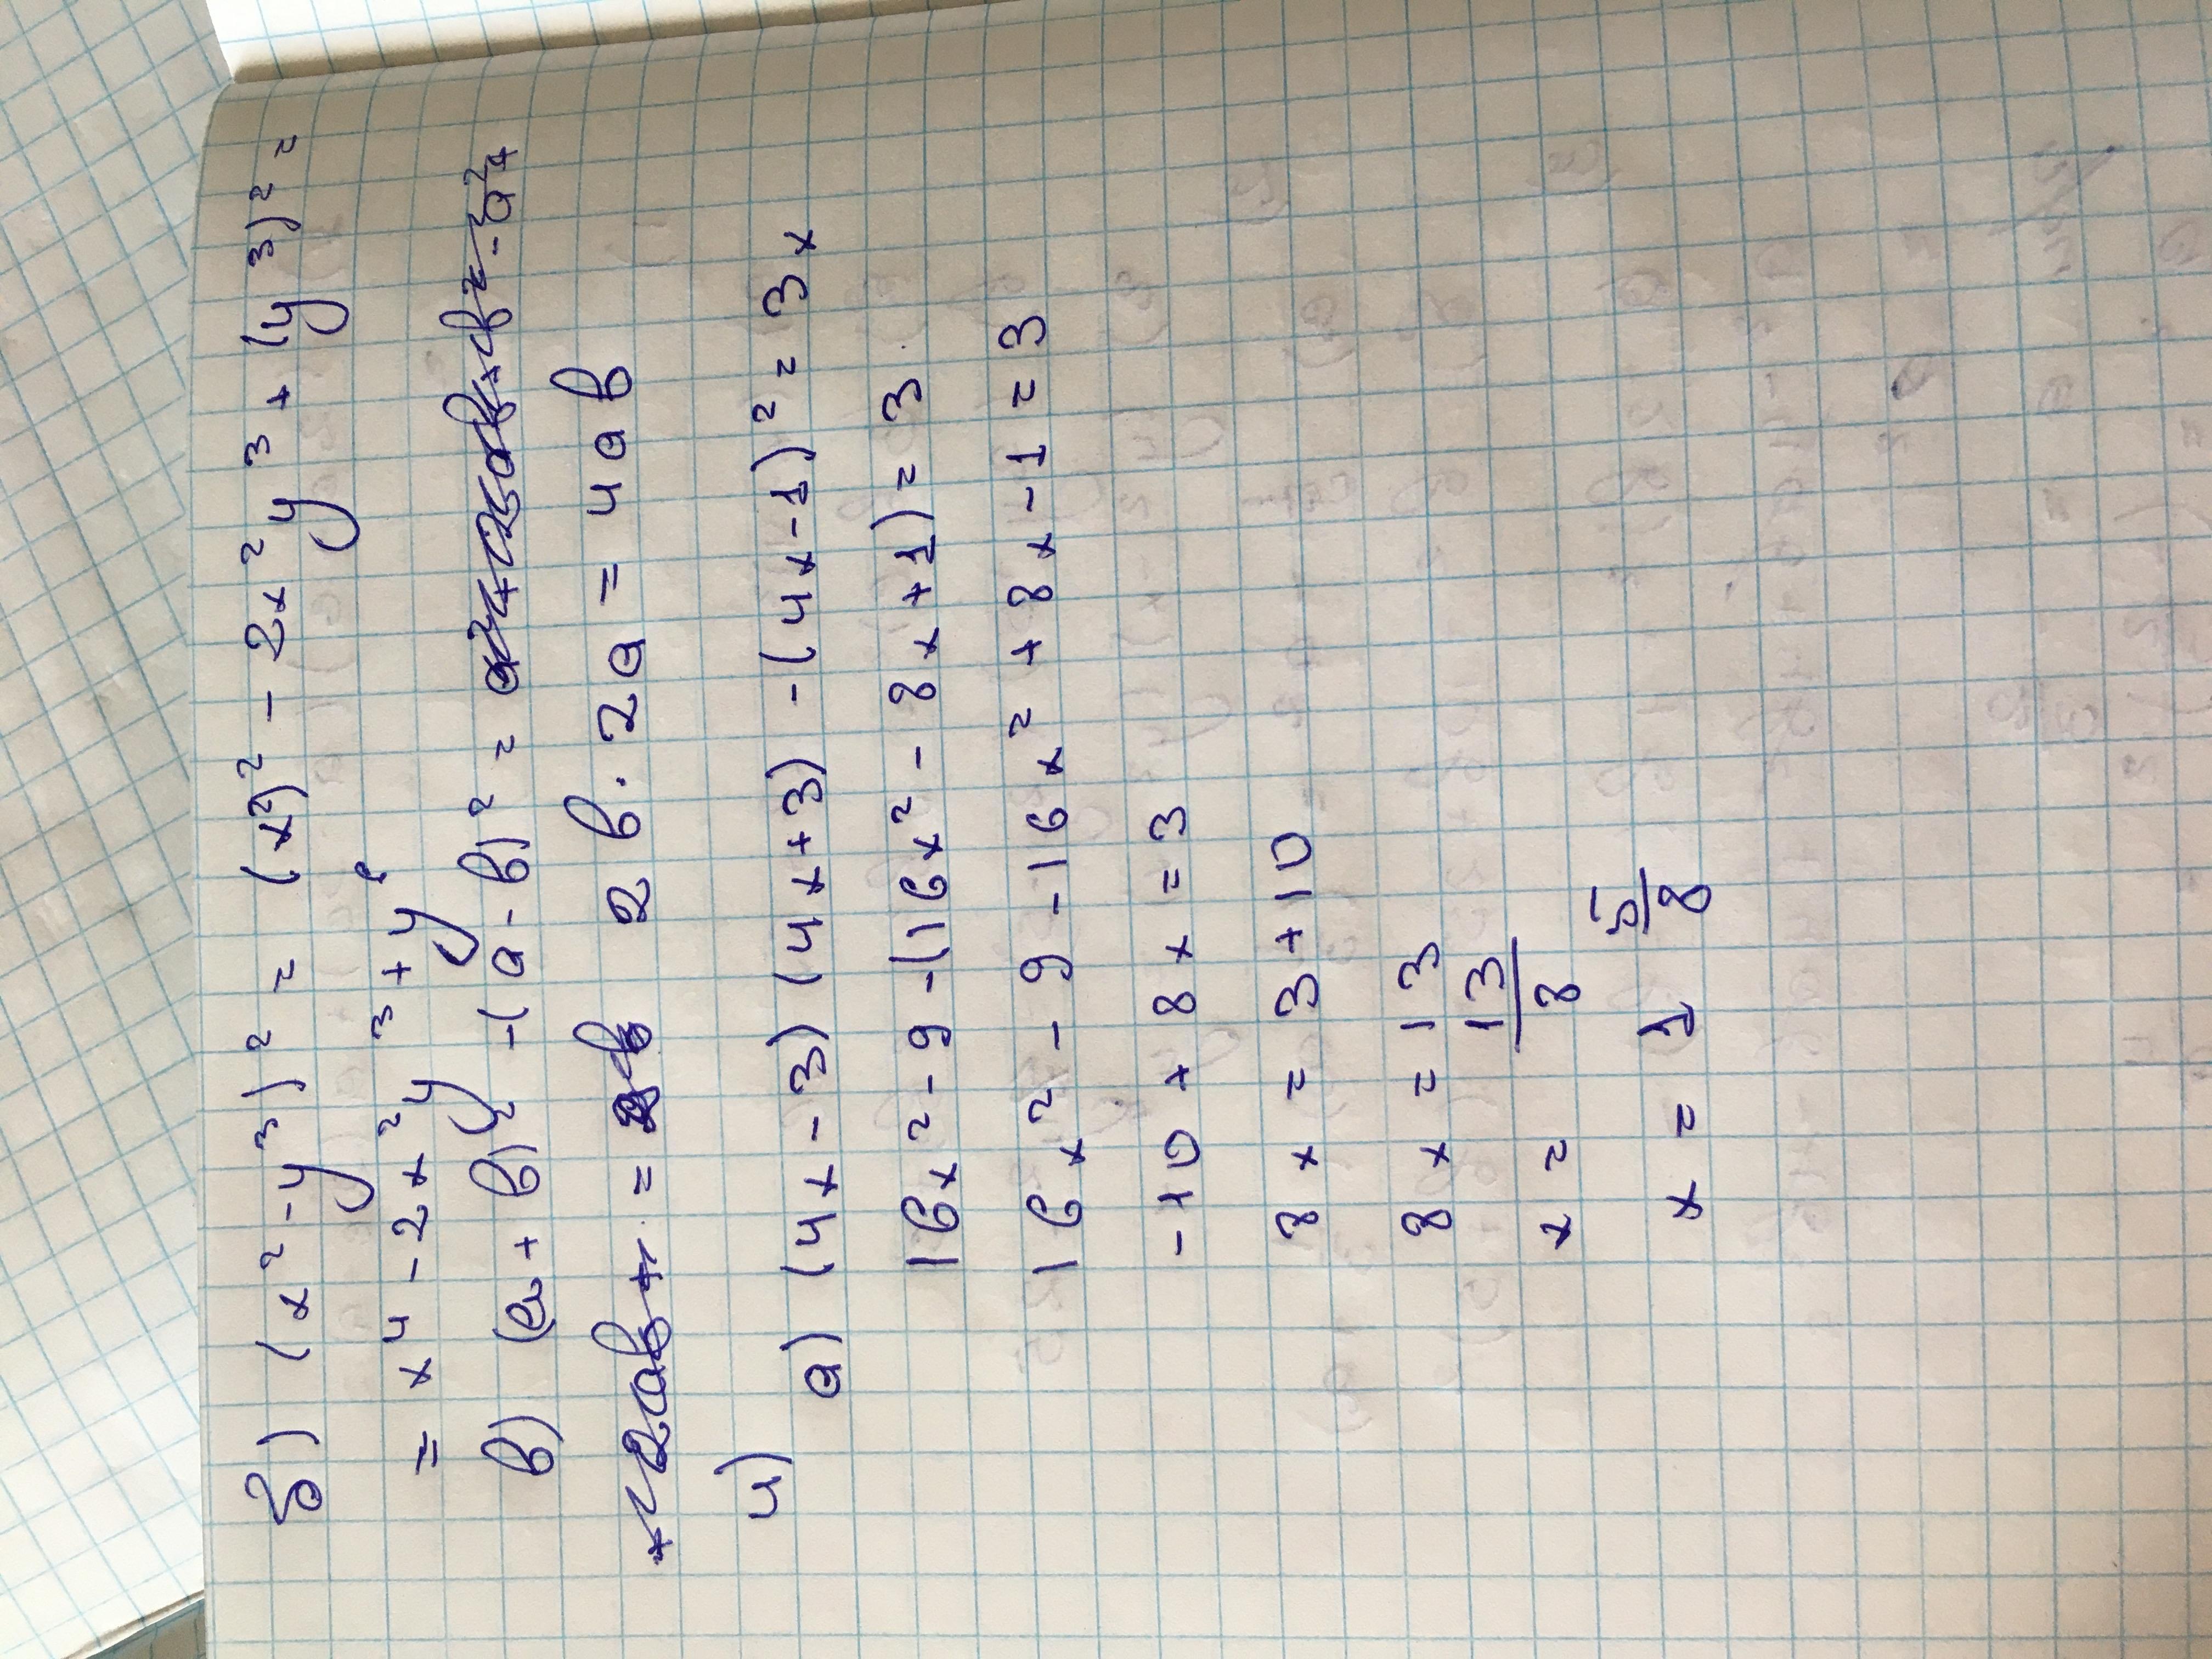 б) (x²-y³)² = (x²)² - 2x²y³ + (y³)² =
= x⁴ - 2x²y³ + y⁶
в) (а + в)² - (а - в)² =
= 2в · 2а = 4ав
4)
а) (4x - 3) (4x + 3) - (4x - 1)² = 3x
16x² - 9 - (16x² - 8x + 1) = 3
16x² - 9 - 16x² + 8x - 1 = 3
-10 + 8x = 3
8x = 3 + 10
8x = 13
x = 13/8
x = 1 5/8